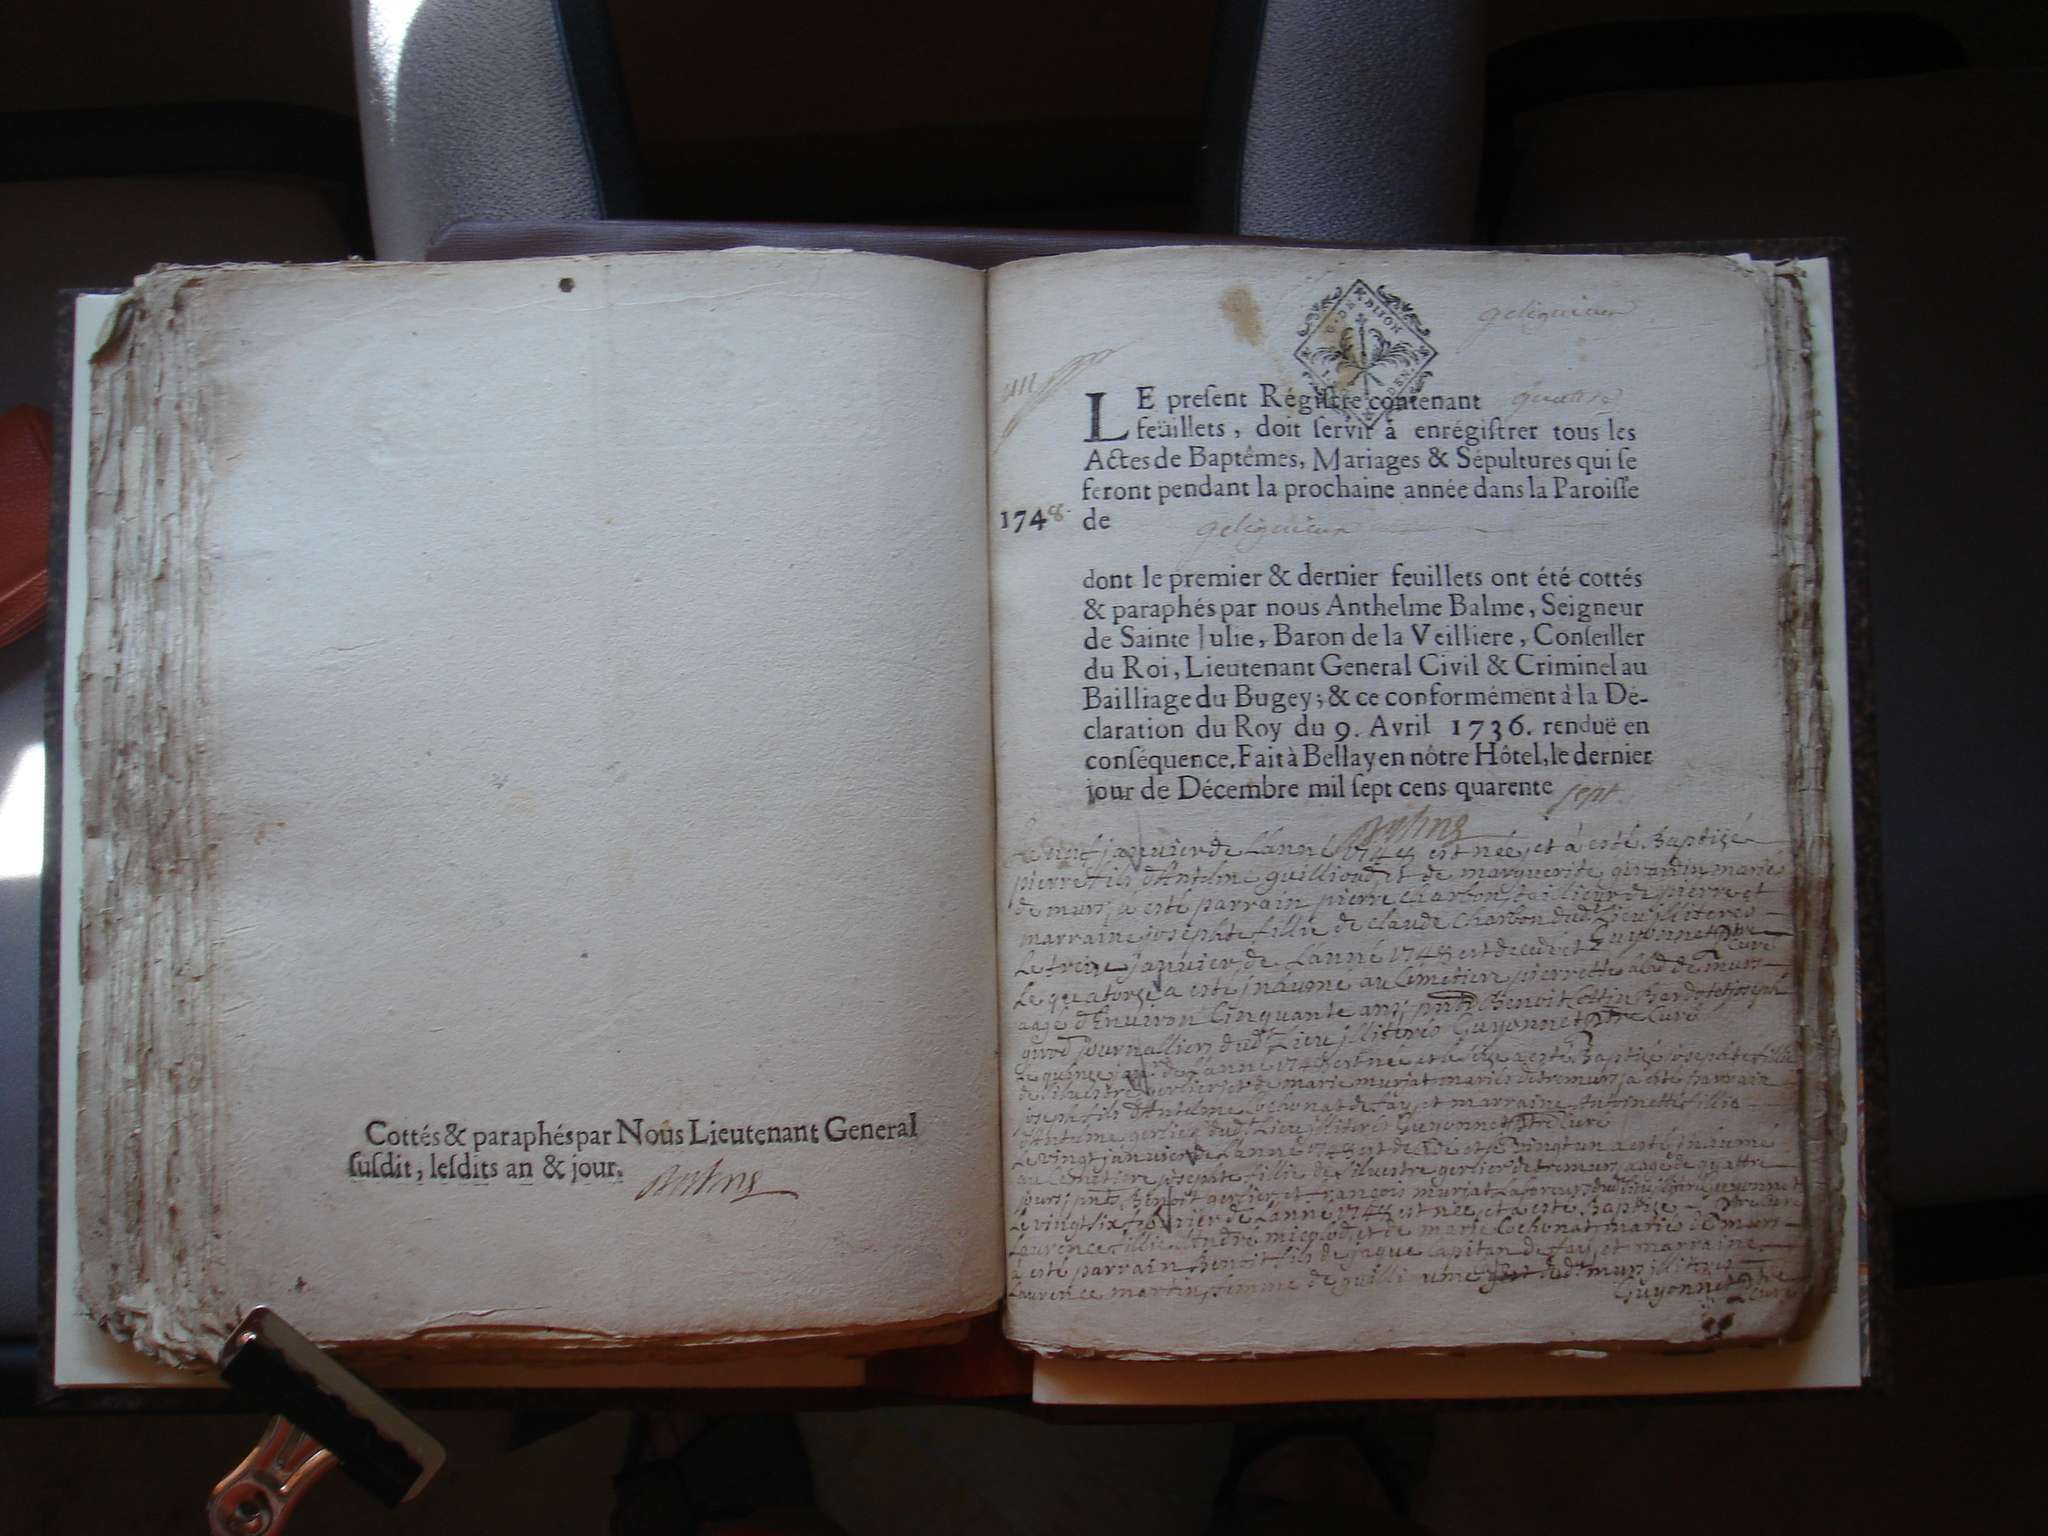 Cottés & paraphés par Nous Lieutenant General
ſuſdit, leſdits an & jour.
G. DE DIJON
gelignieux
LE preſent Régiſtre contenant quatre
feüillets, doit ſervir à enrégiſtrer tous les
Actes de Baptêmes, Mariages & Sépultures qui ſe
feront pendant la prochaine année dans la Paroiſſe
1748. de gelignieux
dont le premier & dernier feuillets ont été cottés
& paraphés par nous Anthelme Balme, Seigneur
de Sainte Julie, Baron de la Veilliere, Conſeiller
du Roi, Lieutenant General Civil & Criminel au
Bailliage du Bugey; & ce conformément à la Dé-
claration du Roy du 9. Avril 1736. renduë en
conſéquence. Fait à Bellay en nôtre Hôtel, le dernier
jour de Décembre mil ſept cens quarente sept
Le neuf janvier de Lanné 1748 est née et à esté Baptizé
pierre fils d'Antelme guillioud et de marguerite girardin mariés
de murs, a esté parrain pierre charbon tailieur de pierre et
marraine josephte fillie de claude Charbon dud. Lieu illiteres
Guyonnet ptre Curé
Le treize janvier de L'anné 1748 est decedé et
Le quatorze a esté jnhumé au Cemetiere pierrette de murs
aagé d'Environ Cinquante ans, pnts Benoit Cottin et joseph
girod journalliers dud. Lieu jlliterés Guyonnet ptre Curé
Le quinze janr. de L'anne 1748 est né et a esté Baptizé josephte fillie
de silvestre gerlier et de marie murjat mariés de murs, a esté parrain
joseph fils d'Antelme Cochonat de fay, et marraine Antoinette fillie
d'Antelme gerlier dud. Lieu jlliterés Guyonnet ptre Curé
Le vingt janvier de L'anne 1748 est decedé et Le vingt un a esté jnhumé
au Cemetiere josephte fillie de silvestre gerlier de murs, aagé de quattre
jours, pnts Benoit gerlier, et françois murjat dud. Lieu Guyonnet
ptre Curé
Le vingt six fevrier de L'anne 1748 est née et a esté Baptizé
Laurence fillie d'André micolod, et de marie Cochonat mariés de murs
à esté parrain Benoit fils de jaque Capitan de fay, et marraine
Laurence martin, femme de guilliaume dud. murs jlliteres
Guyonnet ptre Curé